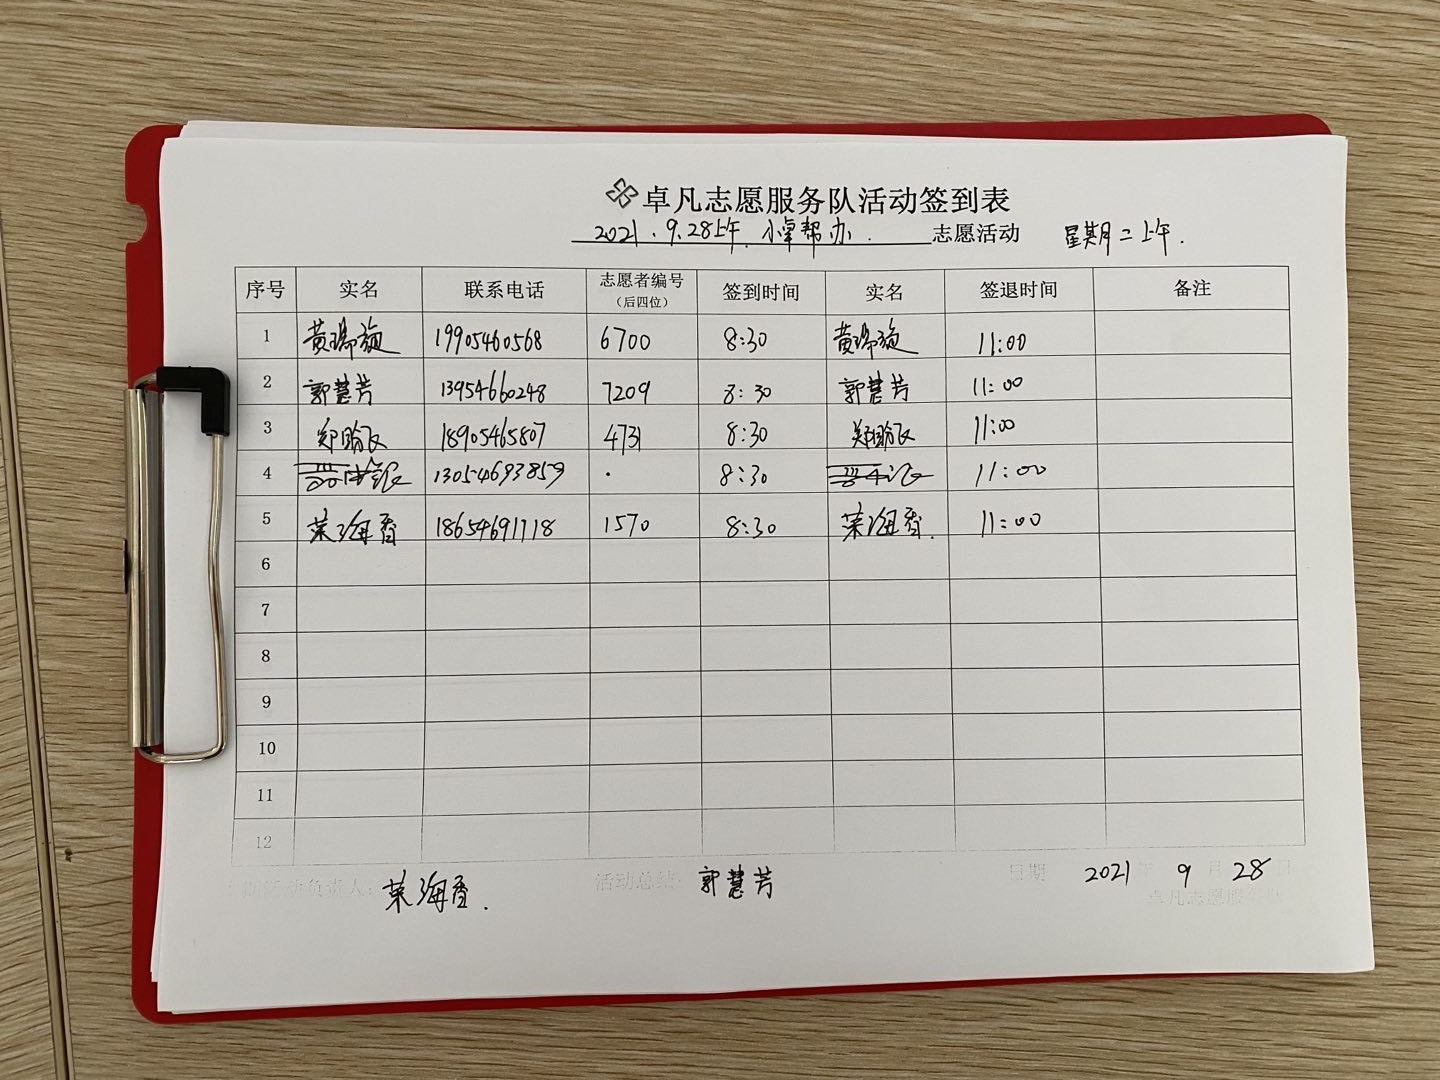 卓凡志愿服务队活动签到表
2021.9.28上午.小卓帮办. 志愿活动 星期二上午.
序号 实名 联系电话 志愿者编号（后四位） 签到时间 实名 签退时间 备注
1 黄瑞旋 19905460568 6700 8:30 黄瑞旋 11:00
2 郭慧芳 13954660248 7209 8:30 郭慧芳 11:00
3 郑 18905465807 4731 8:30 郑 11:00
4 13054693859 8:30 11:00
5 荣海香 18654691718 1570 8:30 荣海香. 11:00
6
7
8
9
10
11
12
活动负责人: 荣海香. 活动总结: 郭慧芳 日期 2021年9月28日
卓凡志愿服务队